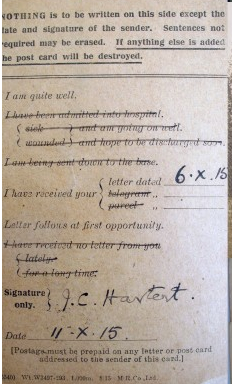 NOTHING is to be written on this side except the
date and signature of the sender. Sentences not
required may be erased. If anything else is added
the post card will be destroyed.
I am quite well.
I have been admitted into hospital.
{ sick } and am going on well.
{ wounded } and hope to be discharged soon.
I am being sent down to the base.
I have received your { letter dated 6·X·15
telegram „
parcel „
Letter follows at first opportunity.
I have received no letter from you
{ lately.
{ for a long time.
Signature
only. } J. C.
Date 11-X.15
[Postage must be prepaid on any letter or post card
addressed to the sender of this card.]
Wt.W3497-293. 8/15 M.R.Co.,Ltd.